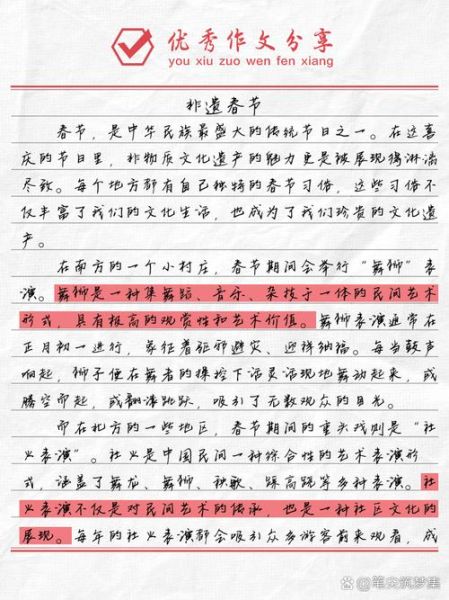 优秀作文分享
you xiu zuo wen fen xiang
非遗春节
春节，是中华民族最盛大的传统节日之一。在这喜
庆的节日里，非物质文化遗产的魅力更是被展现得淋漓
尽致。每个地方都有自己独特的春节习俗，这些习俗不
仅丰富了我们的文化生活，也成为了我们珍贵的文化遗
产。
在南方的一个小村庄，春节期间会举行“舞狮”表
演。舞狮是一种集舞蹈、音乐、杂技于一体的民间艺术
形式，具有极高的观赏性和艺术价值。舞狮表演通常在
正月初一进行，象征着驱邪避灾、迎祥纳福。每当鼓声
响起，狮子便在舞者的操控下活灵活现地舞动起来，或
腾空而起，或翻滚跳跃，吸引了无数观众的目光。
而在北方的一些地区，春节期间的重头戏则是“社
火表演”。社火是中国民间一种综合性的艺术表演形
式，涵盖了舞龙、舞狮、秧歌、踩高跷等多种表演。社
火表演不仅是对民间艺术的传承，也是一种社区文化的
展现。每年的社火表演都会吸引众多游客前来观看，成
笔尖筑梦集